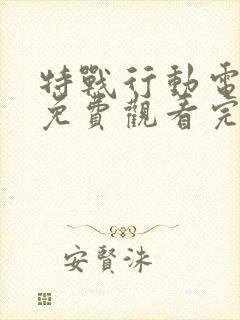 特戰行動電
免費觀看完
安賢洙